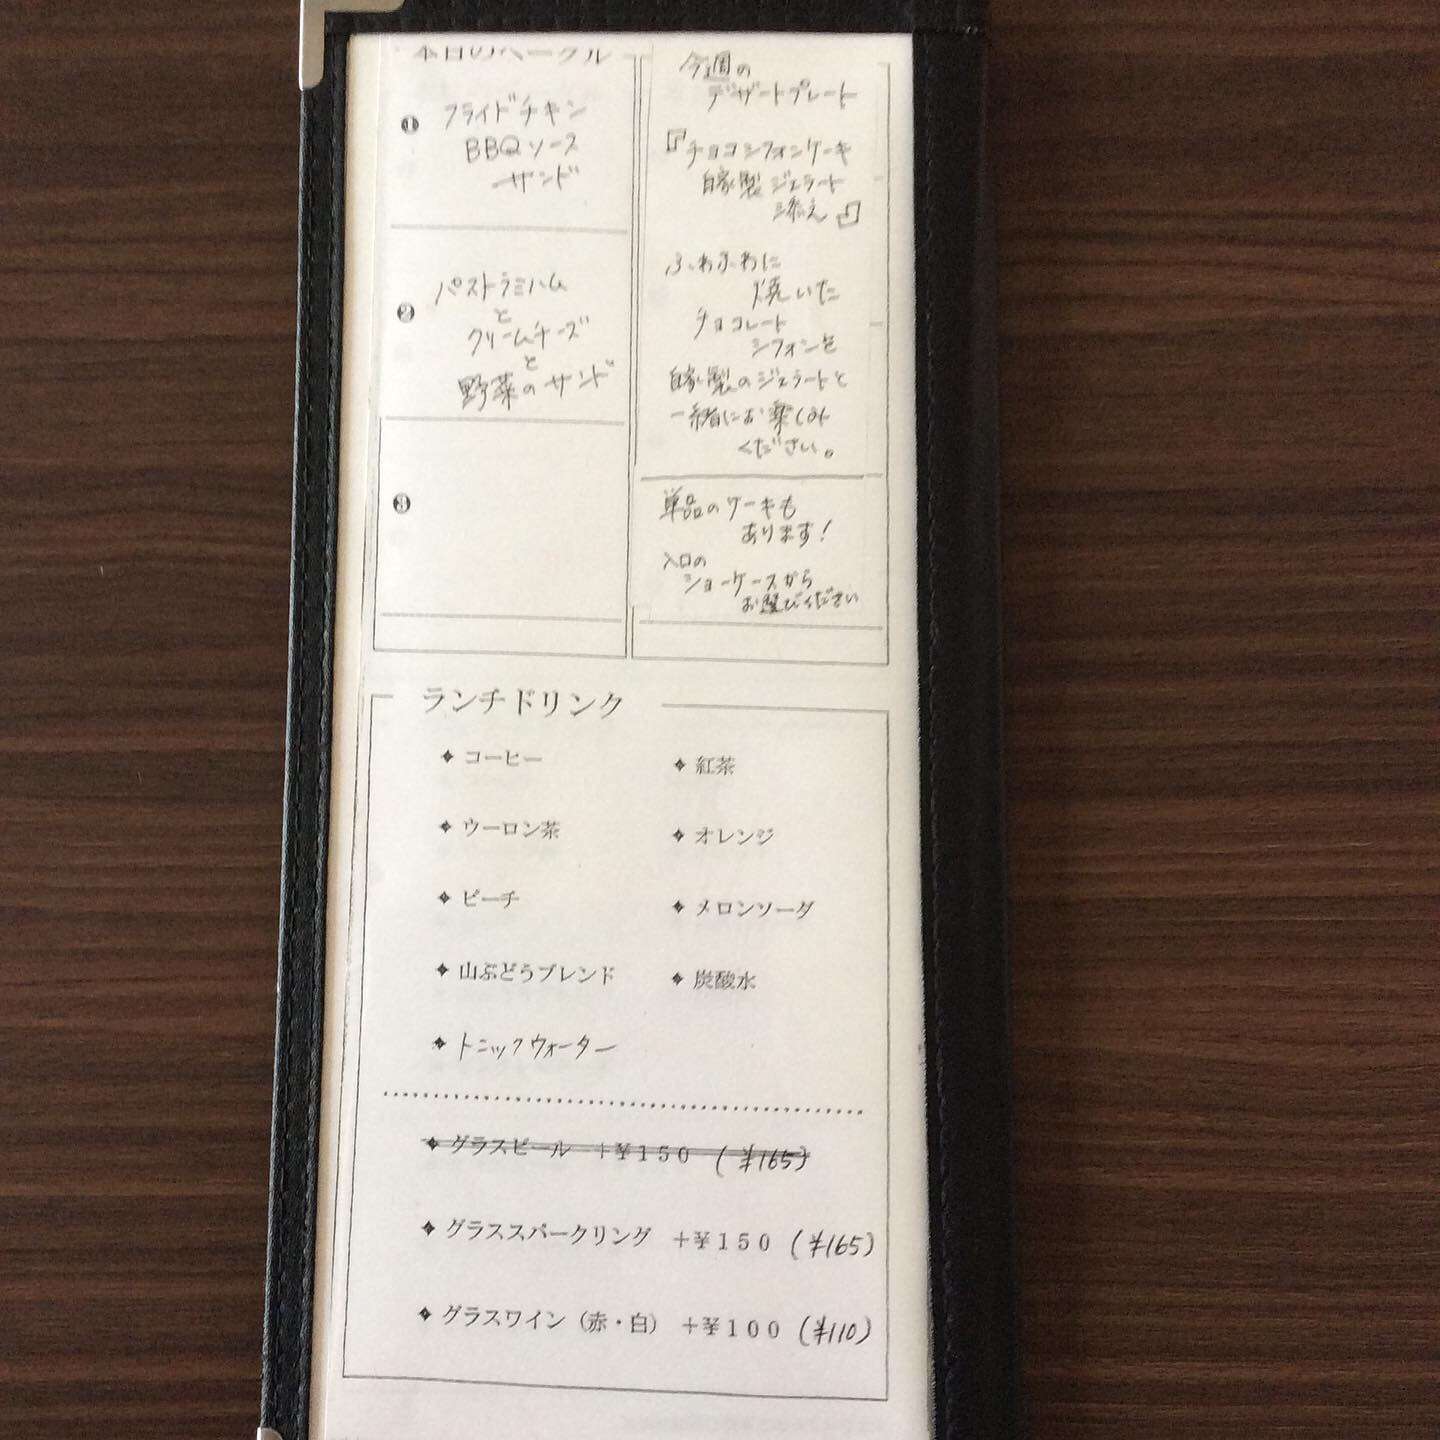 本日のベーグル
❶ フライドチキン
BBQソース
サンド
❷ パストラミハム
と
クリームチーズ
と
野菜のサンド
❸
今週の
デザートプレート
『チョコシフォンケーキ
自家製ジェラート
添え』
ふわふわに
焼いた
チョコレート
シフォンを
自家製のジェラートと
一緒にお楽しみ
ください。
単品のケーキも
あります!
入口の
ショーケースから
お選びください
ランチドリンク
コーヒー
紅茶
ウーロン茶
オレンジ
ピーチ
メロンソーダ
山ぶどうブレンド
炭酸水
トニックウォーター
グラスビール +¥150 (¥165)
グラススパークリング +¥150 (¥165)
グラスワイン(赤・白) +¥100 (¥110)